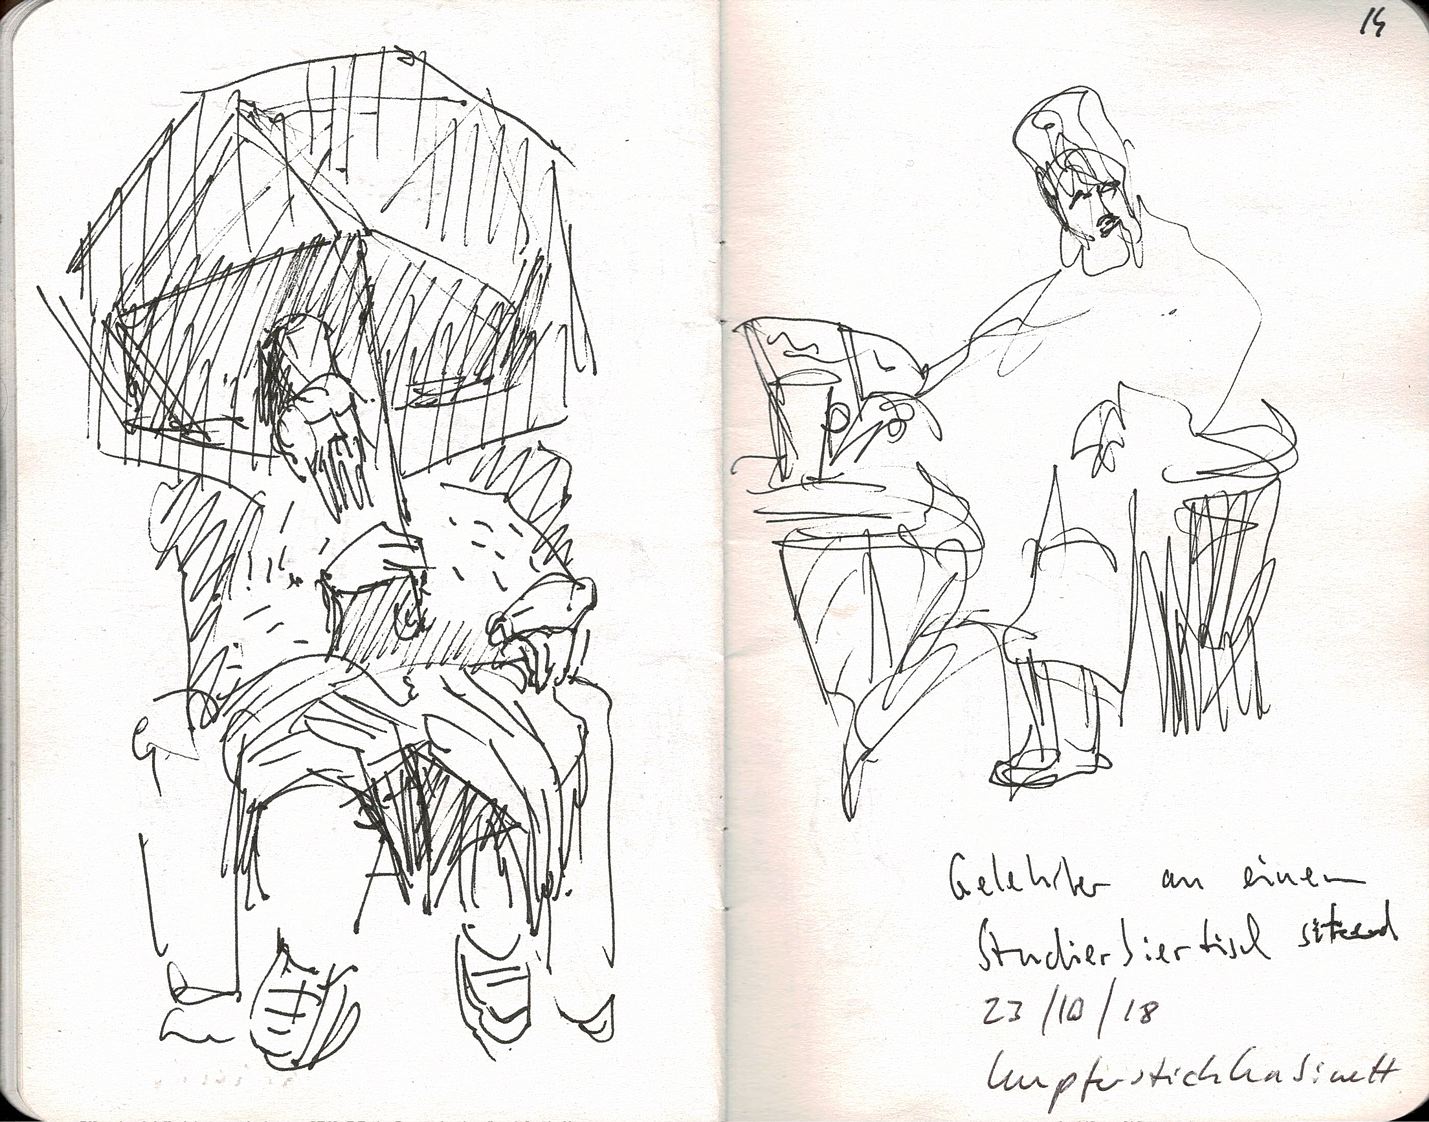 14
Gelehrter an einem
Studierbiertisch sitzend
23/10/18
Kupferstichkabinett